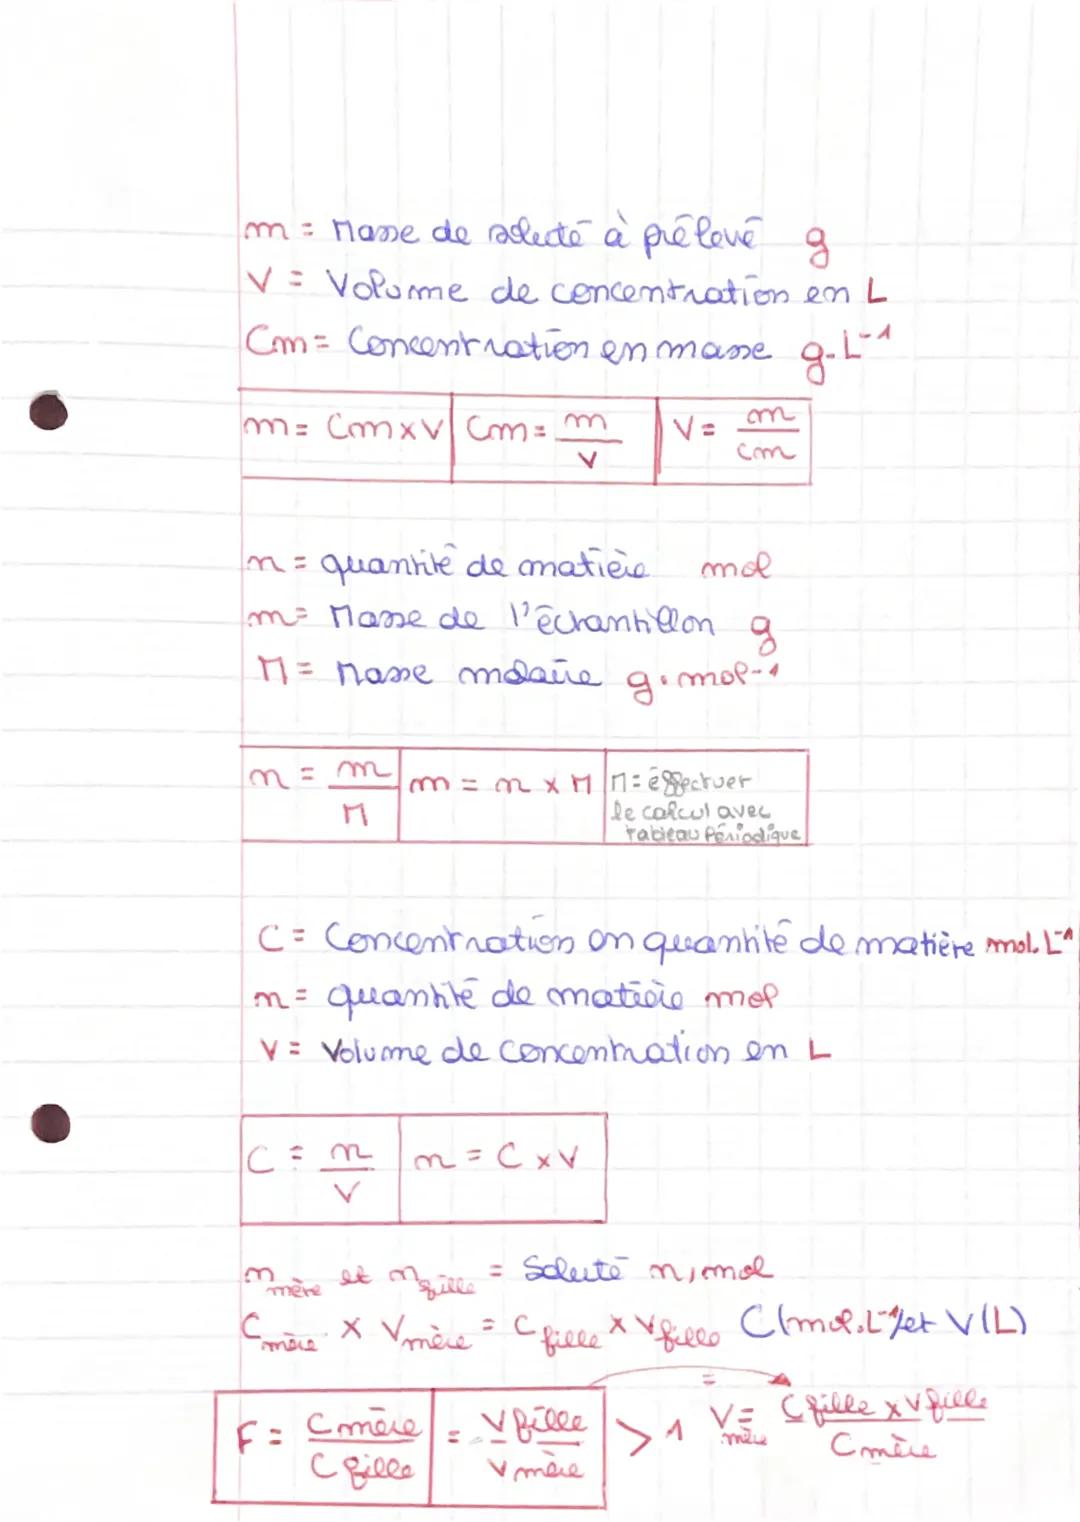 m = Masse de soluté à prélevé g
V = Volume de concentration en L
Cm = Concentration en masse g.L⁻¹
m = Cm x V | Cm = m/V | V = m/Cm
n = quantité de matière mol
m = Masse de l'échantillon g
M = Masse molaire g.mol⁻¹
n = m/M | m = n x M | M = éffectuer
le calcul avec
tableau Périodique
C = Concentration en quantité de matière mol.L⁻¹
n = quantité de matière mol
V = Volume de concentration en L
C = n/V | n = C x V
n mère et n fille = Soluté n, mol
C mère x V mère = C fille x V fille C(mol.L⁻¹) et V(L)
F = C mère/C fille = V fille/V mère > 1 = V mère = C fille x V fille/C mère